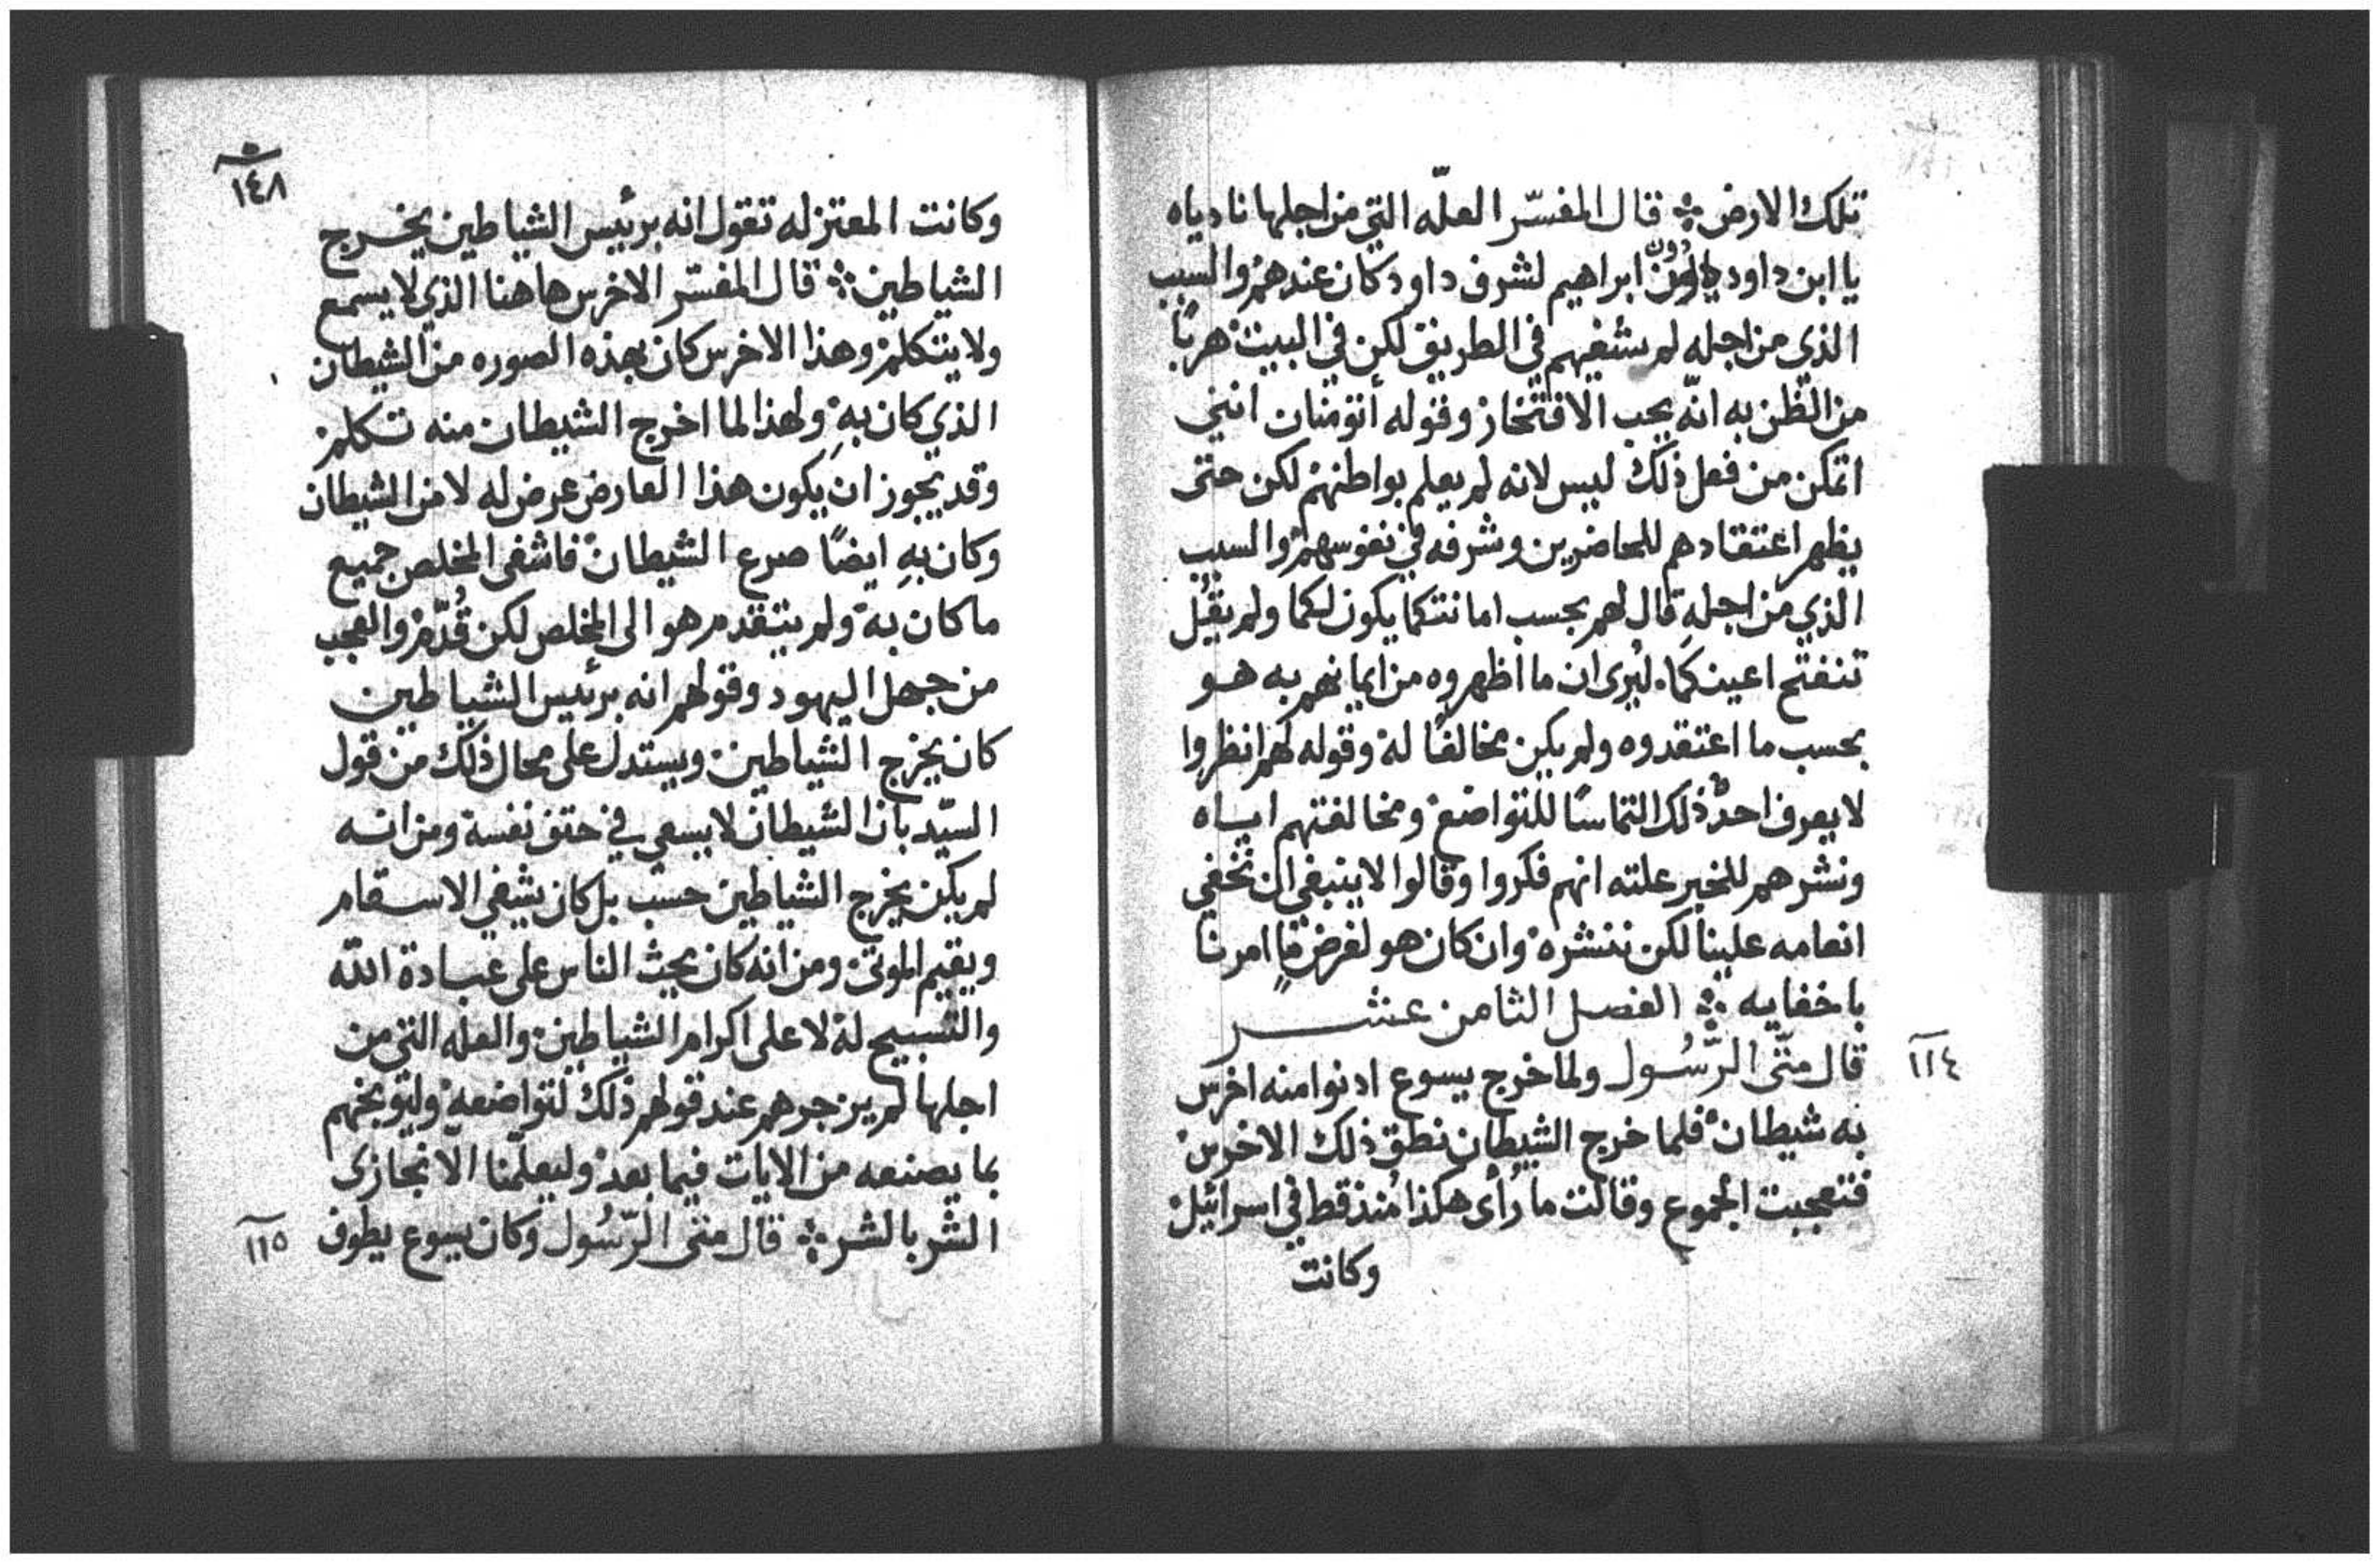 تلك الارض ۞ قال المفسّر العلّه التي من اجلها نادياه
يا ابن داود دون ابراهيم لشرف داود كان عندهم والسبب
الذي من اجله لم يشفيهم في الطريق لكن في البيت هربًا
من الظن به انّه يحب الافتخار وقوله أتؤمنان انني
اتمكن من فعل ذلك ليس لانه لم يعلم بواطنهم لكن حتى
يظهر اعتقادهم للحاضرين وشرفه في نفوسهم والسبب
الذي من اجله قال لهم بحسب امانتكما يكون لكما ولم يقُل
تنفتح اعينكما ليُرى ان ما اظهروه من ايمانهم به هو
بحسب ما اعتقدوه ولم يكن مخالفًا له وقوله لهم انظروا
لا يعرف احدٌ ذلك التماسًا للتواضع ومخالفتهم اياه
ونشرهم للخبر علته انهم فكروا وقالوا لا ينبغي ان نخفي
انعامه علينا لكن ننشره وان كان هو لغرض ما امرنا
باخفايه ۞ الفصل الثامن عشر
١١٤
قال متّى الرّسُول ولما خرج يسوع ادنوا منه اخرس
به شيطان فلما خرج الشيطان نطق ذلك الاخرس
فتعجبت الجموع وقالت ما رُأى هكذا مُنذ قط في اسرائيل
وكانت
١٤٨
وكانت المعتزله تقول انه برئيس الشياطين يخرج
الشياطين ۞ قال المفسّر الاخرس هاهنا الذي لا يسمع
ولا يتكلم وهذا الاخرس كان بهذه الصوره من الشيطان
الذي كان بهِ ولهذا لما اخرج الشيطان منه تكلم
وقد يجوز ان يكون هذا العارض عرض له لا من الشيطان
وكان بهِ ايضًا صرع الشيطان فاشفى المخلص جميع
ما كان به ولم يتقدم هو الى المخلص لكن قُدّم والعجب
من جهل اليهود وقولهم انه برئيس الشياطين
كان يخرج الشياطين ويستدل على محال ذلك من قول
السيّد بان الشيطان لا يسعى في حتف نفسه ومن انه
لم يكن يخرج الشياطين حسب بل كان يشفي الاسقام
ويقيم الموتى ومن انه كان يحث الناس على عبادة الله
والتسبيح له لا على اكرام الشياطين والعله التي من
اجلها لم يزجرهم عند قولهم ذلك لتواضعه ولتوبيخهم
بما يصنعه من الايات فيما بعد وليعلّمنا الّا نجازي
الشر بالشر ۞ قال متى الرّسُول وكان يسوع يطوف
١١٥